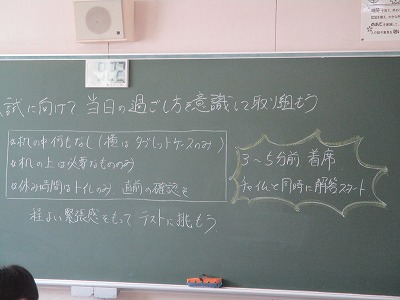 試に向けて 当日の過ごし方を意識して取り組もう
☆机の中何もなし(横はタブレットケースのみ)
☆机の上は必要なもののみ
☆休み時間はトイレのみ 直前の確認を
3〜5分前 着席
チャイムと同時に解答スタート
程よい緊張感をもって テストに挑もう